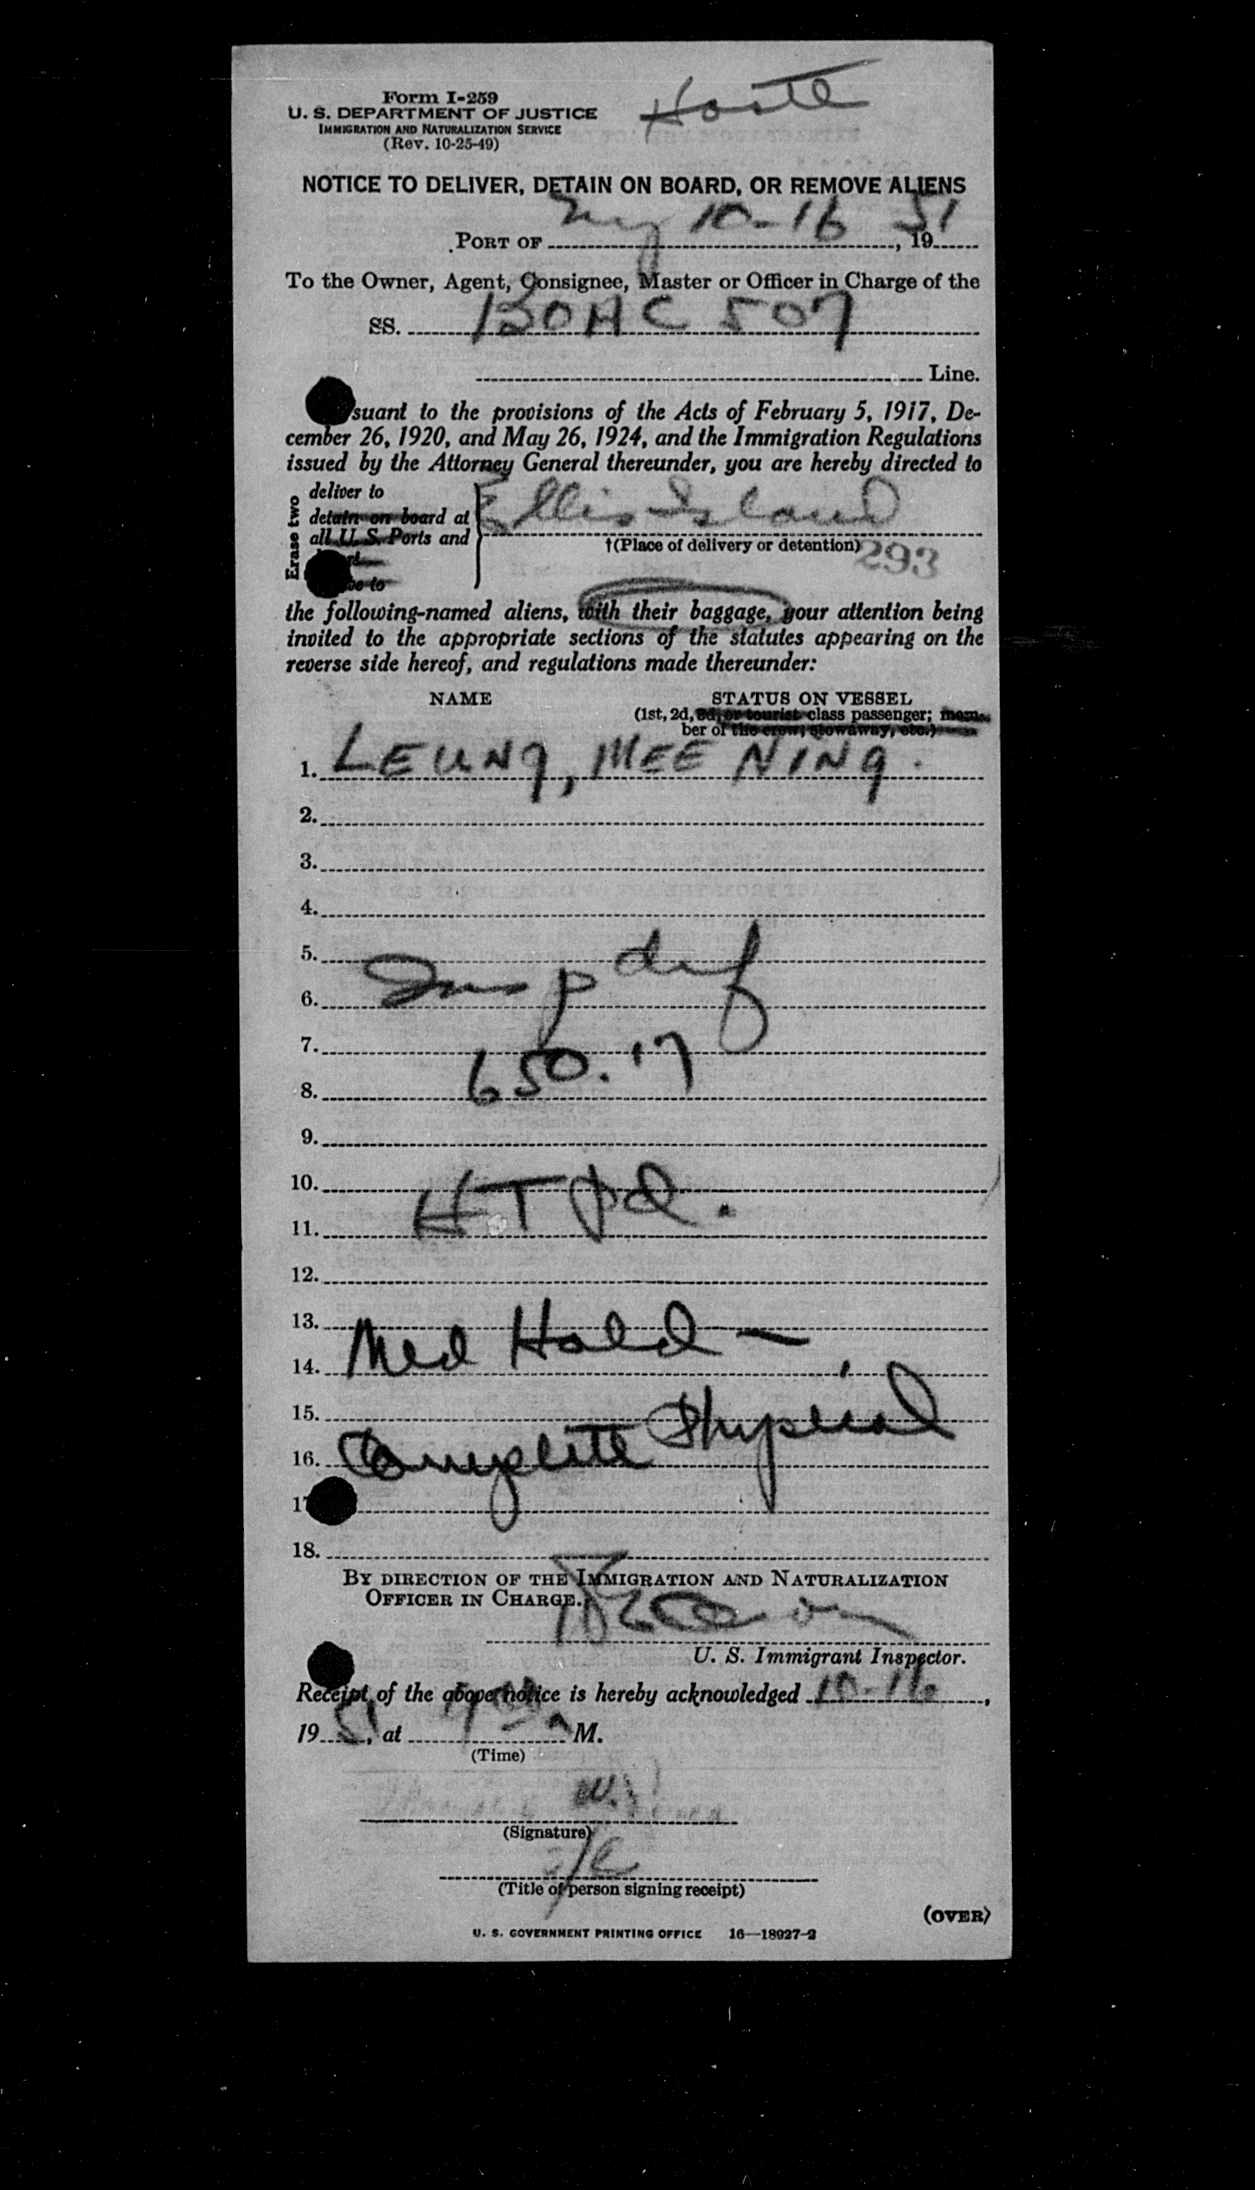 Form I-259
U. S. DEPARTMENT OF JUSTICE
IMMIGRATION AND NATURALIZATION SERVICE
(Rev. 10-25-49)
NOTICE TO DELIVER, DETAIN ON BOARD, OR REMOVE ALIENS
PORT OF NY 10-16, 1951
To the Owner, Agent, Consignee, Master or Officer in Charge of the
SS. BOAC 507
Line.
suant to the provisions of the Acts of February 5, 1917, De-
cember 26, 1920, and May 26, 1924, and the Immigration Regulations
issued by the Attorney General thereunder, you are hereby directed to
Erase two
deliver to
detain on board at
all U. S. Ports and
Ellis Island
†(Place of delivery or detention)
293
the following-named aliens, with their baggage, your attention being
invited to the appropriate sections of the statutes appearing on the
reverse side hereof, and regulations made thereunder:
NAME STATUS ON VESSEL
(1st, 2d, 3d, or tourist class passenger; mem-
ber of the crew, stowaway, etc.)
1. LEUNG, MEE NING.
2.
3.
4.
5.
6. Insp def
7.
8. 650.17
9.
10.
11. HT pd.
12.
13.
14. Med Hold -
15.
16. Complete Physical
17
18.
BY DIRECTION OF THE IMMIGRATION AND NATURALIZATION
OFFICER IN CHARGE.
U. S. Immigrant Inspector.
Receipt of the above notice is hereby acknowledged 10-16,
1951, at M.
(Time)
W.
(Signature)
(Title of person signing receipt)
(OVER)
U. S. GOVERNMENT PRINTING OFFICE 16—18927-2